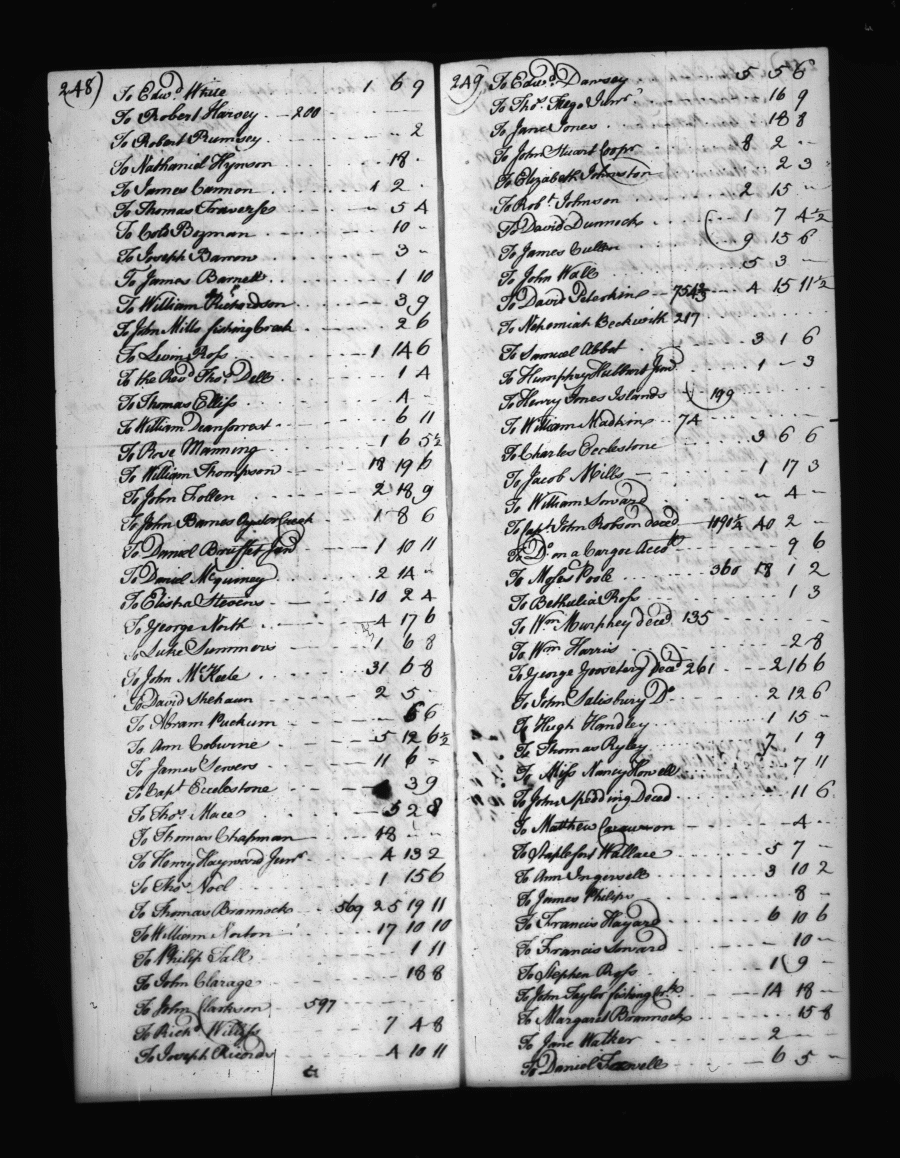 248)
To Edwd. White 1 6 9
To Robert Harsey 200
To Robert Rumsey 2
To Nathaniel Hynson 18 -
To James Cannon 1 2 -
To Thomas Traverse 5 4
To Beyman 10 -
To Joseph Barron 3 -
To James Barnett 1 10
To William Richardson 3 9
To John Mills fishing Creek 2 6
To Levin Ross 1 14 6
To the Revd. Thos. Dell 1 4
To Thomas Elliss 4 -
To William Deanforrest 6 11
To Rose Manning 1 6 5½
To William Thompson 18 19 6
To John Tollen 2 18 9
To John Barnes Oyster Creek 1 8 6
To Daniel Bruffet Junr 1 10 11
To Daniel McGuiney 2 14 -
To Elisha Stevens 10 2 4
To George North 4 17 6
To Luke Summors 1 6 8
To John McKeele 31 6 8
To David Shehawn 2 5 -
To Abram Puckum 6 6
To Ann Coburne 5 12 6½
To James Sewers 11 6 -
To Capt. Eccleston 3 9
To Thos. Mace 5 2 8
To Thomas Chapman 18 - -
To Henry Hayward Junr. 4 13 2
To Thos. Noel 1 15 6
To Thomas Brannock 569 25 19 11
To William Norton 17 10 10
To Philip Tall 1 11
To John Clarage 18 8
To John Clarkson 597
To Richd. Williss 7 4 8
To Joseph Ricords 4 10 11
249)
To Edwd. Dawsey 5 5 6
To Thos. Fligo Junr. 16 9
To Jane Jones 18 8
To John Stuart Coopr 8 2 -
To Elizabeth Johnston 2 3
To Robt. Johnson 2 15 -
To David Dunnock 1 7 4½
To James Cullen 9 15 6
To John Wall 5 3 -
To David Peterkin 4 15 11½
To Nehemiah Beckwith 217
To Samuel Abbet 3 1 6
To Humphrey Hubbart Junr 1 - 3
To Henry Jones Islands 199
To William Madkins 74
To Charles Eccleston 3 6 6
To Jacob Mills 1 17 3
To William Soward - 4 -
To Capt. John Robson Deced 1191¼ 40 2 -
To Do. on a Cargoe Accot. 9 6
To Moses Poole 360 18 1 2
To Bethulia Ross 1 3
To Wm. Murphey deced 135
To Wm. Harris 2 8
To George Deced 261 2 16 6
To John Salisbury Do. 2 12 6
To Hugh Handley 1 15 -
To Thomas Ryley 7 1 9
To Miss Nancy Howell 7 11
To John Spedding Deced 11 6
To Matthew 4 -
To Staplefort Wallace 5 7 -
To Ann Ingersell 3 10 2
To James Philips 8 -
To Francis Hayard 6 10 6
To Francis Soward 10 -
To Stephen Ross 1 9 -
To John Taylor fishing Crk. 14 18 -
To Margaret Brannock 15 8
To Jane Walker 2 -
To Daniel Foxwell 6 5 -